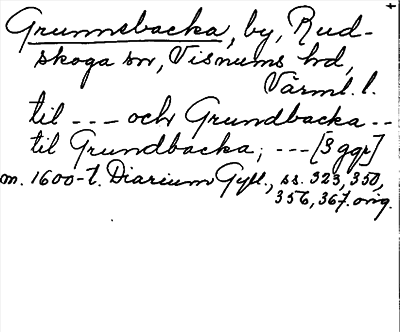 Grumsbacka, by, Rud-
skoga sn, Visnums hd,
Värml. l.
til --- och Grundbacka --
til Grundbacka; --- [3 ggr]
m. 1600-t. Diarium Gyll., ss. 323, 350,
356, 367. orig.